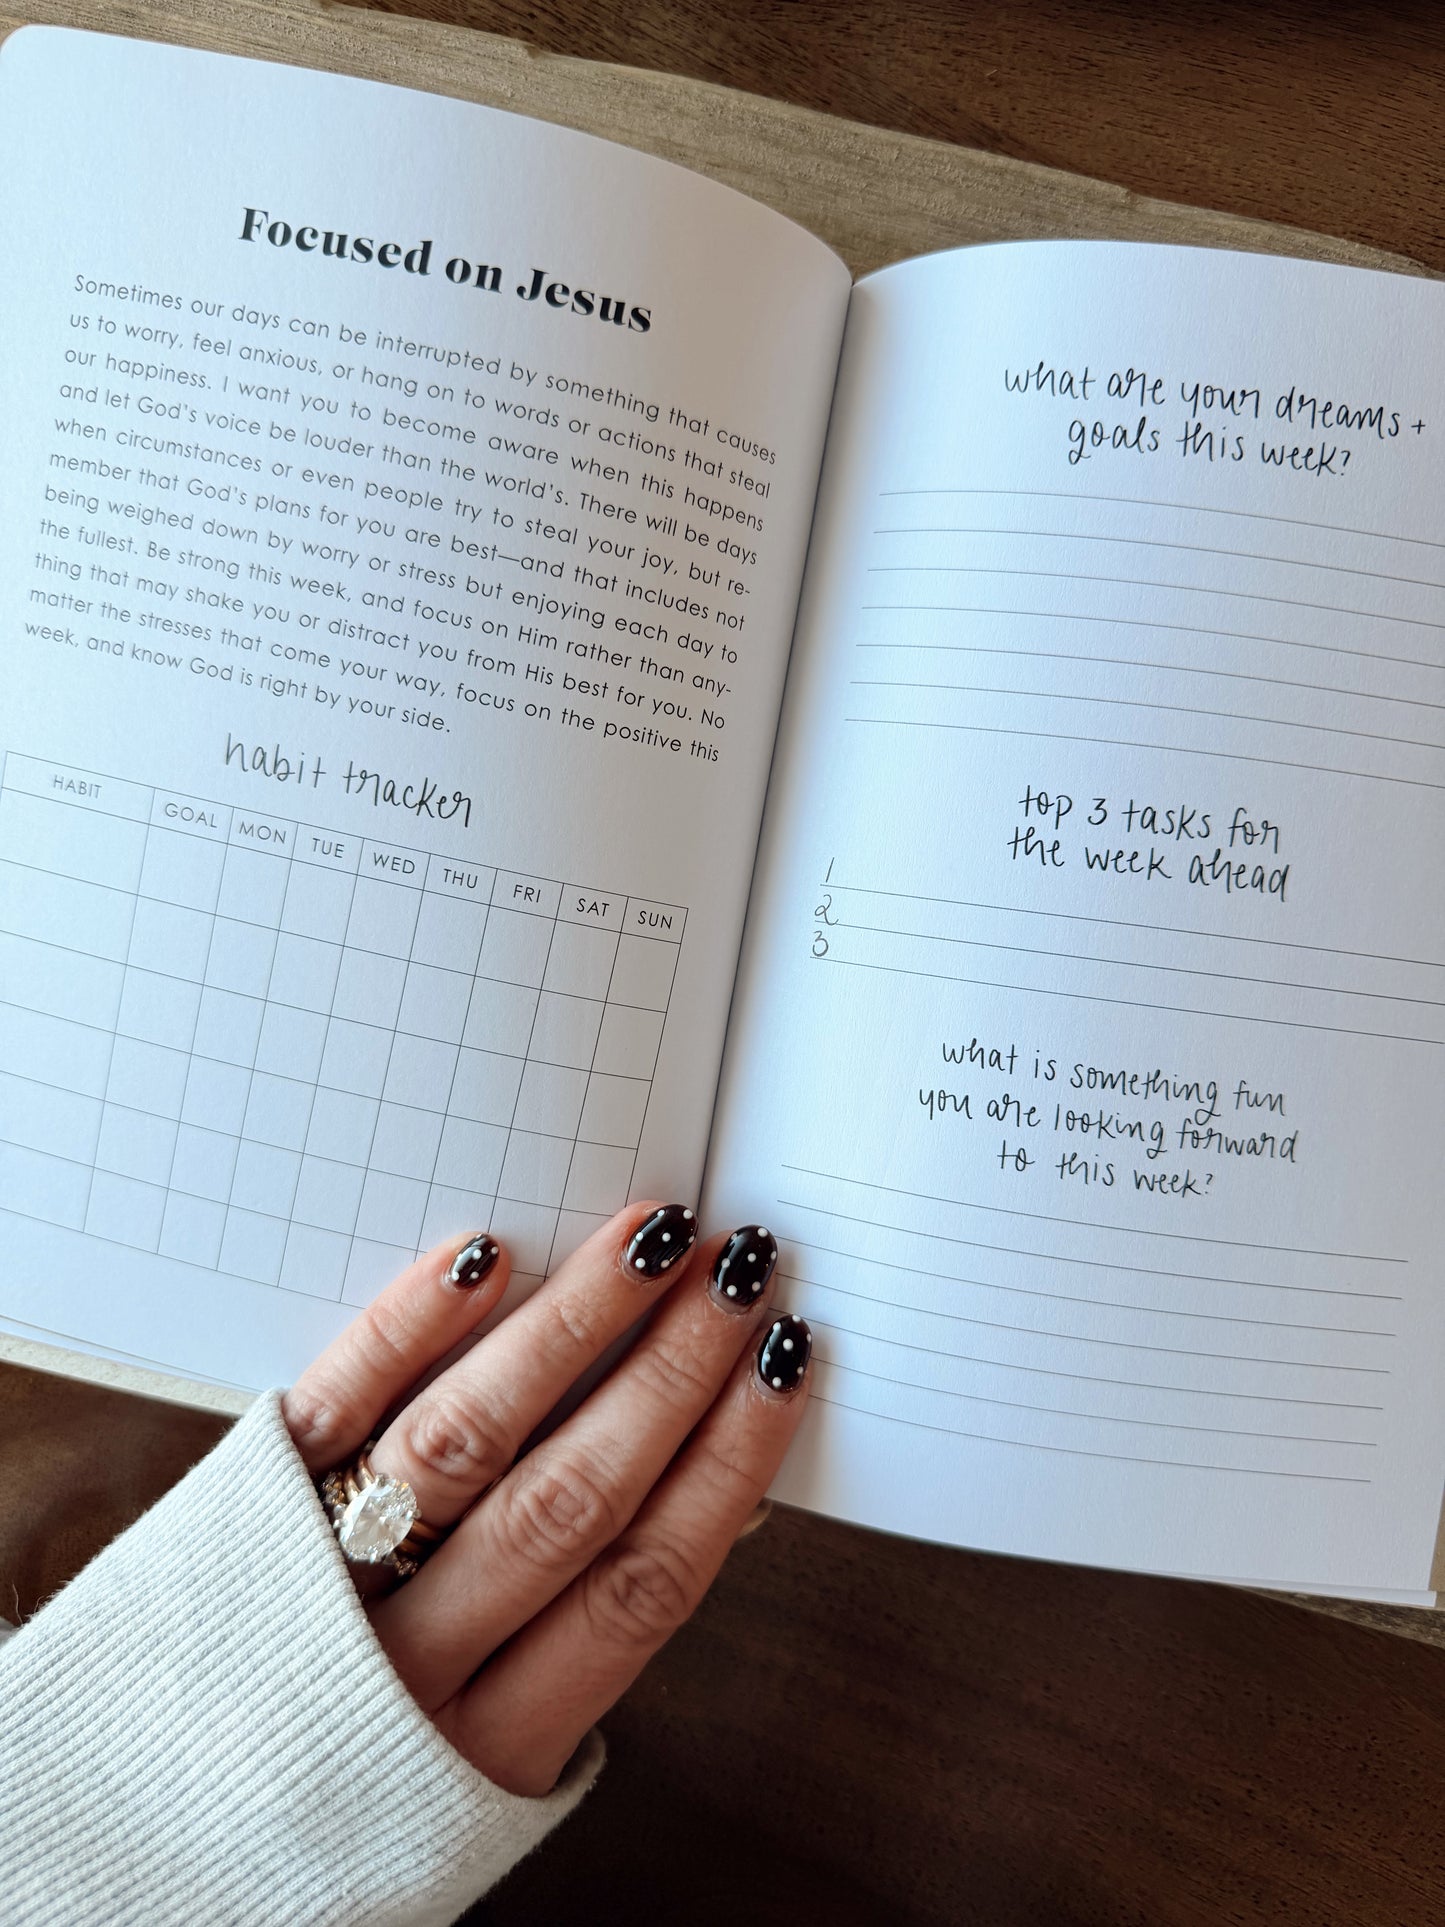 Focused on Jesus
Sometimes our days can be interrupted by something that causes
us to worry, feel anxious, or hang on to words or actions that steal
our happiness. I want you to become aware when this happens
and let God's voice be louder than the world's. There will be days
when circumstances or even people try to steal your joy, but re-
member that God's plans for you are best—and that includes not
being weighed down by worry or stress but enjoying each day to
the fullest. Be strong this week, and focus on Him rather than any-
thing that may shake you or distract you from His best for you. No
matter the stresses that come your way, focus on the positive this
week, and know God is right by your side.
habit tracker
HABIT GOAL MON TUE WED THU FRI SAT SUN
what are your dreams +
goals this week?
top 3 tasks for
the week ahead
1
2
3
what is something fun
you are looking forward
to this week?